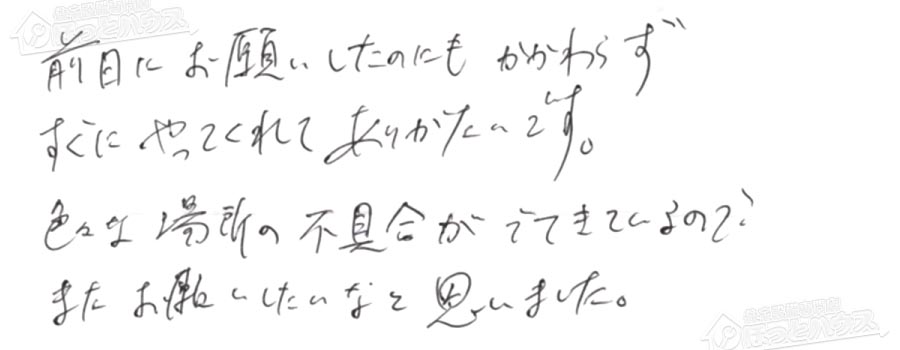 前日にお願いしたのにもかかわらず
すぐにやってくれてありがたいです。
色々な場所の不具合がでてきているので
またお願いしたいなと思いました。
ほっとハウス
ほっとハウス